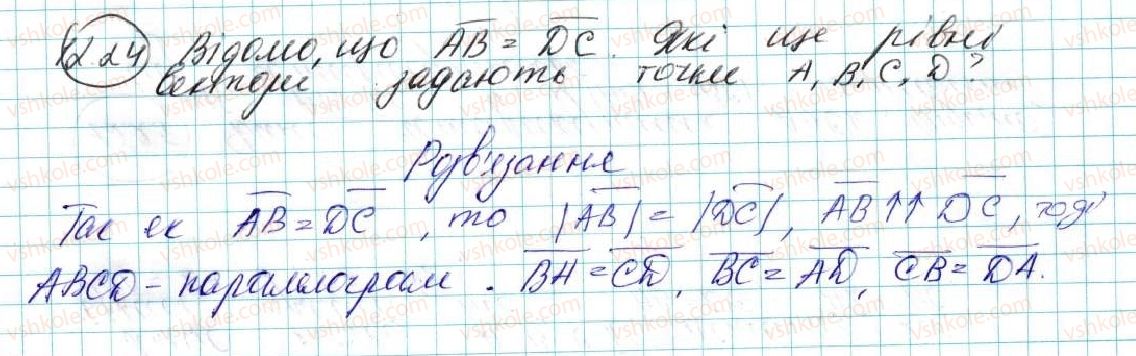 12.24 Відомо, що AB = DC. Які ще рівні
вектори задають точки A, B, C, D?
Розв'язання
Так як AB = DC, то |AB| = |DC|, AB ↑↑ DC, тоді
ABCD - паралелограм. BA = CD, BC = AD, CB = DA.